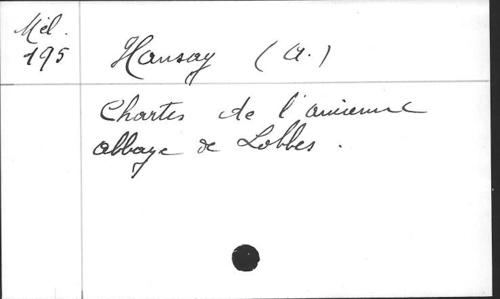 Mél.
195
Hansay (A.)
Chartes de l'ancienne
abbaye de Lobbes.